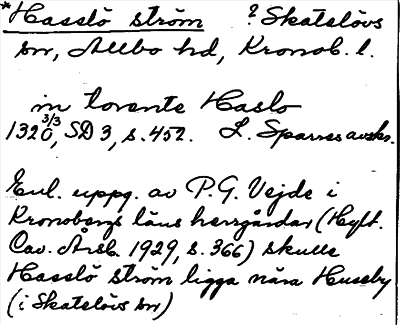 *Hasslö ström ? Skatelövs
sn, Allbo hd, Kronob. l.
in torente Haslo
1320 3/3, SD 3, s. 452. L. Sparres avskr.
Enl. uppg. av P.G. Vejde i
Kronobergs läns herrgårdar (Hylt.
Cav. Årsb. 1929, s. 366) skulle
Hasslö ström ligga nära Huseby
(i Skatelövs sn)